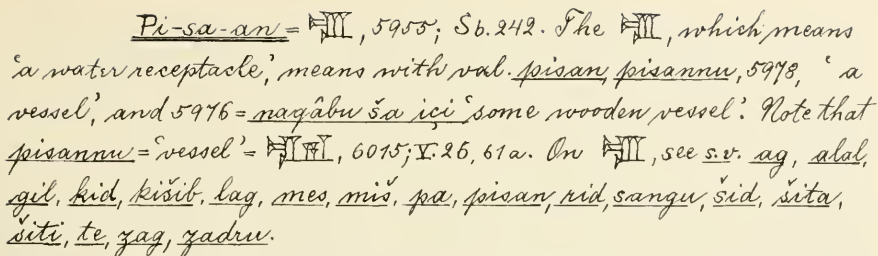 Pi-sa-an = 𒋃, 5955; Sb. 242. The 𒋃, which means
'a water receptacle,' means with val. pisan pisannu, 5978, 'a
vessel', and 5976 = nagâbu ša içi 'some wooden vessel'. Note that
pisannu = 'vessel' = , 6015; V. 26, 61a. On 𒋃, see s.v. ag, alal,
gil, kid, kišib, lag, mes, miš, pa, pisan, rid, sangu, šid, šita,
šiti, te, zag, zadru.